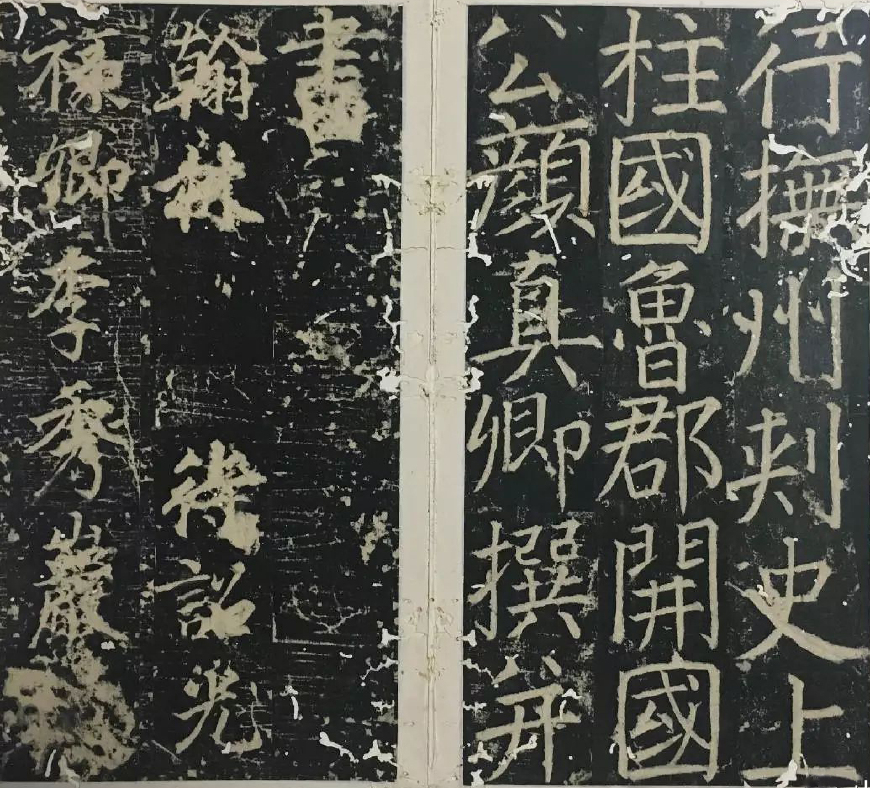 行撫州刾史上
柱國魯郡開國
公顔真卿撰并
書
翰林 待詔光
祿卿李秀巖